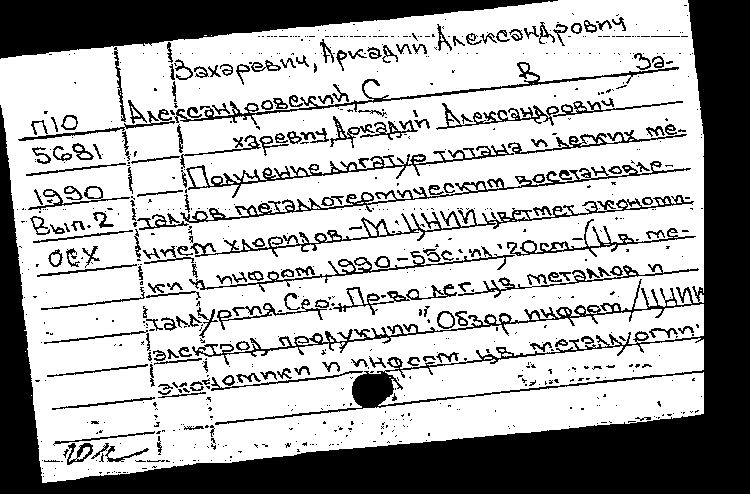 Захаревич, Аркадий Александрович
Александровский, С В , За-
П10 харевич, Аркадий Александрович
5681 Получение лигатур титана и легких ме-
1990 таллов металлотермическим восстановле-
Вып. 2 нием хлоридов. - М.: ЦНИИ цветмет экономи-
осх ки и информ, 1990. - 53с.: ил.; 20см - (Цв. ме-
таллургия. Сер.: „Пр-во лег. цв. металлов и
электрод. продукции": Обзор. информ. / ЦНИИ
экономики и информ. цв. металлургии;